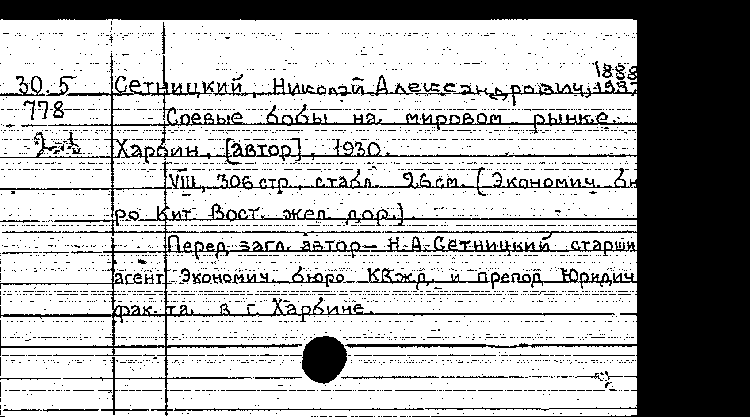 1888
30.5 Сетницкий, Николай Александрович, 1937
778 Соевые бобы на мировом рынке.
Харбин, [автор], 1930.
VIII, 306 стр. с табл. 26 см. (Экономич. бю
ро Кит. Вост. жел. дор.)
Перед загл. автор— Н.А.Сетницкий старши
агент Экономич. бюро КВжд. и препод Юридич
фак-та в г. Харбине.